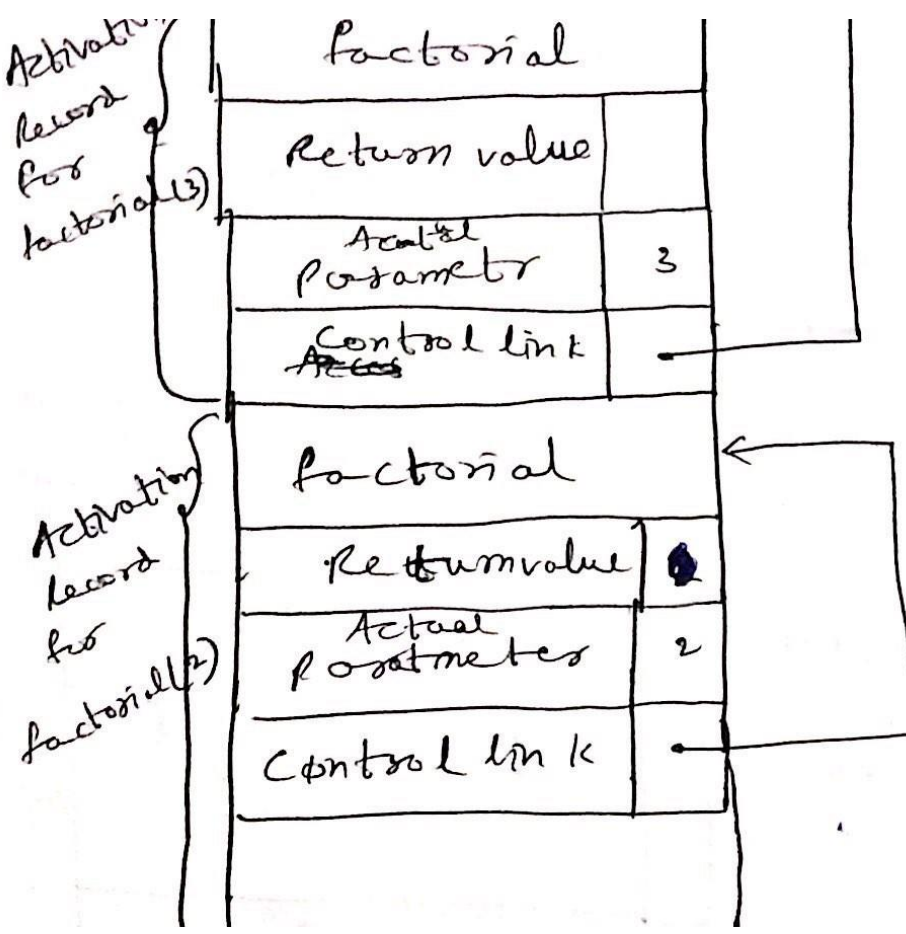 Activation
Record
for
factorial(3)
factorial
Return value
Acutal
Parametr
3
Control link
factorial
Activation
Record
for
factorial(2)
Returnvalue
Actual
Paratmeter
2
Control link